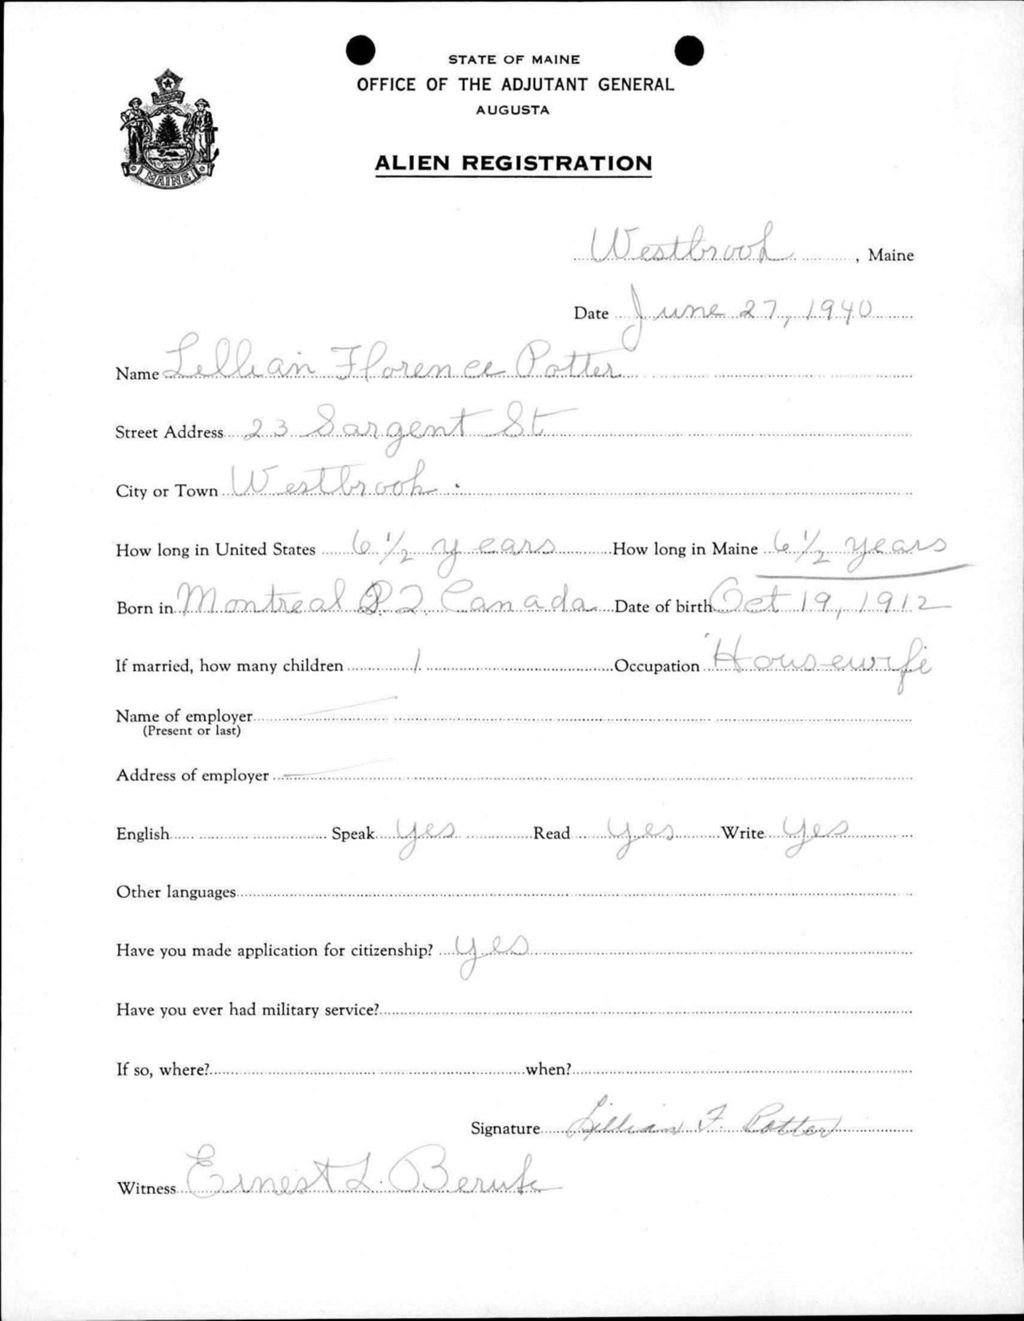 STATE OF MAINE
OFFICE OF THE ADJUTANT GENERAL
AUGUSTA
ALIEN REGISTRATION
MAINE
Westbrook, Maine
Date June 27, 1940
Name Lillian Florence Potter
Street Address 23 Sargent St
City or Town Westbrook.
How long in United States 6 1/2 years How long in Maine 6 1/2 years
Born in Montreal P.Q. Canada Date of birth Oct 19, 1912
If married, how many children 1 Occupation Housewife
Name of employer
(Present or last)
Address of employer
English Speak Yes Read Yes Write Yes
Other languages
Have you made application for citizenship? Yes
Have you ever had military service?
If so, where? when?
Signature Lillian F. Potter
Witness Ernest L.